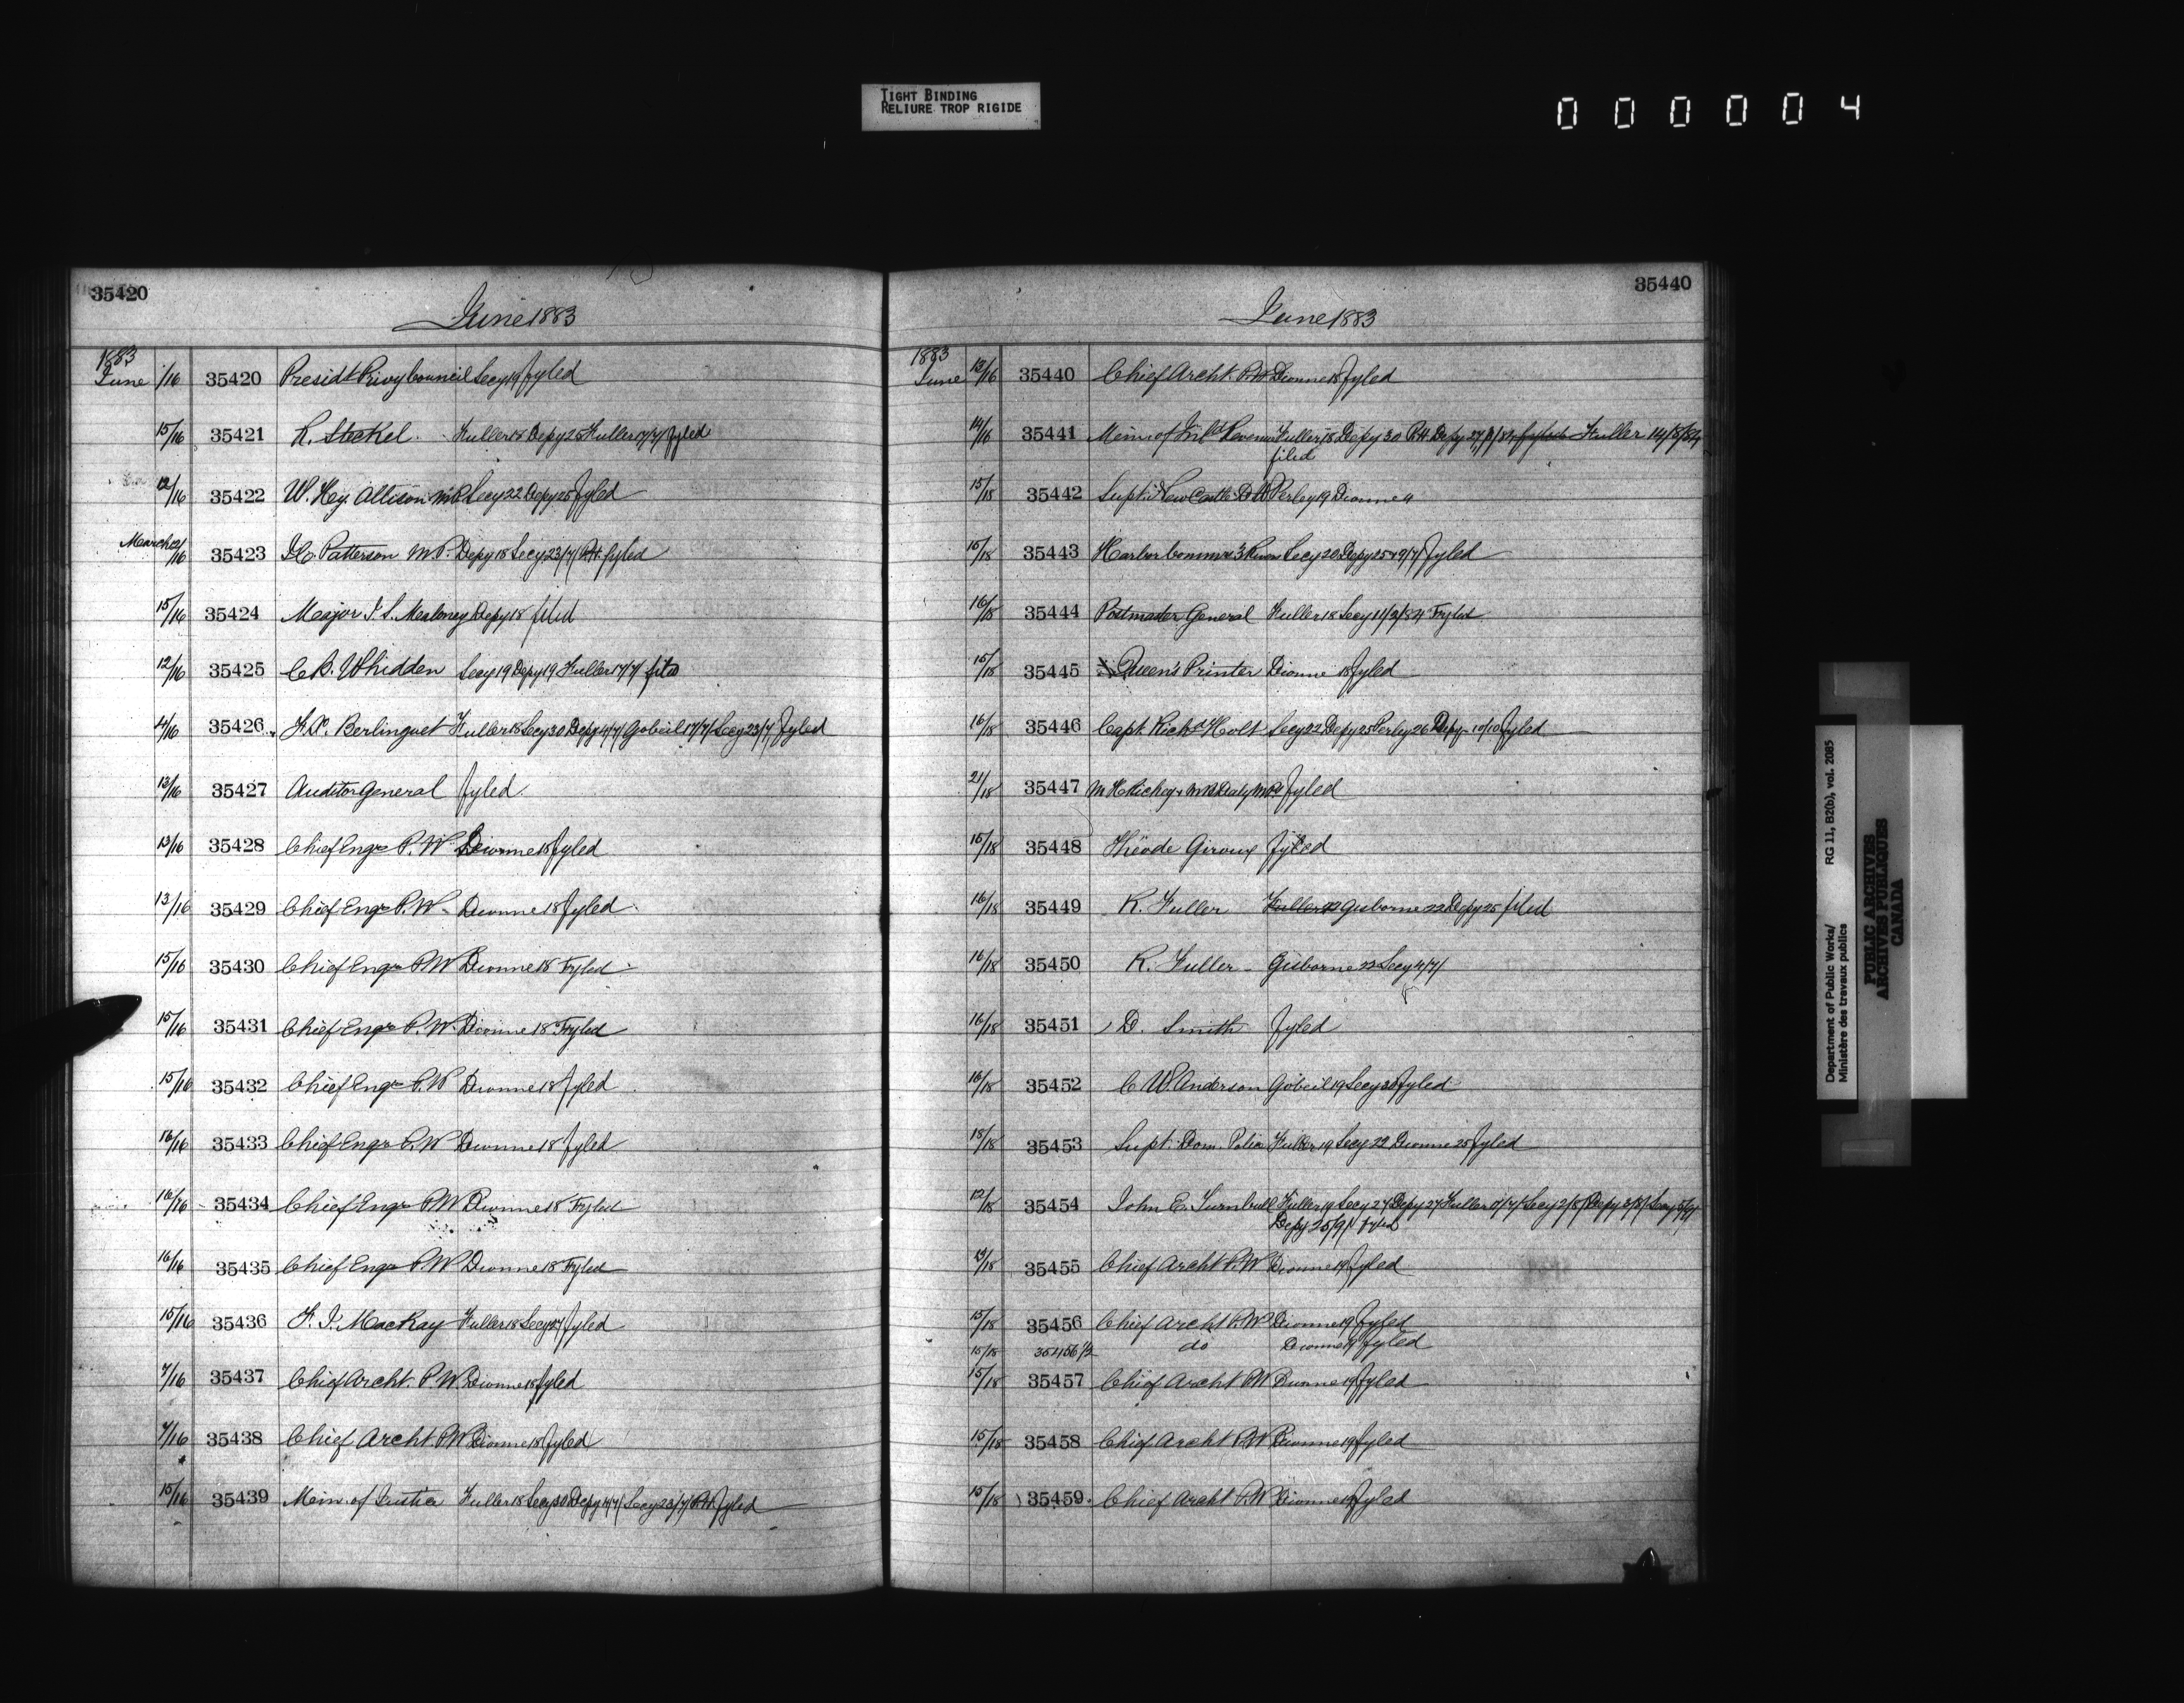 TIGHT BINDING
RELIURE TROP RIGIDE
0 0 0 0 0 4
35420
June 1883
1883
June 1/16 35420 Presidt Privy Council Secy 19 fyled
15/16 35421 R. Steckel. Fuller 18 Depy 25 Fuller 17/7/ fyled
12/16 35422 W. Hy. Allison M.P. Secy 22 Depy 25 fyled
March 12/16 35423 Patterson M.P. Depy 18 Secy 23/7/ P.H. fyled
15/16 35424 Major J. S. Depy 18 filed
12/16 35425 C. B. Whidden Secy 19 Depy 19 Fuller 17/7/
4/16 35426 F. X. Berlinguet Fuller 18 Secy 30 Depy 4/7/ Gobeil 17/7/ Secy 23/7/ fyled
13/16 35427 Auditor General fyled.
13/16 35428 Chief Engr P. W. Dionne 18 fyled
13/16 35429 Chief Engr P. W. Dionne 18 fyled
15/16 35430 Chief Engr P W Dionne 18 Fyled
15/16 35431 Chief Engr P. W. Dionne 18 Fyled
15/16 35432 Chief Engr P. W Dionne 18 fyled
16/16 35433 Chief Engr P. W Dionne 18 fyled
16/16 35434 Chief Engr P W Dionne 18 Fyled
16/16 35435 Chief Engr P. W Dionne 18 Fyled
15/16 35436 F. J. MacKay Fuller 18 Secy 27 fyled
7/16 35437 Chief Archt. P. W. Dionne 18 fyled
7/16 35438 Chief Archt. P W Dionne 18 fyled
15/16 35439 Min. of Justice Fuller 18 Secy 30 Depy 4/7/ Secy 23/7/ P.H. fyled
35440
June 1883
1883
June 12/16 35440 Chief Archt. P. W. Dionne 18 fyled
14/16 35441 Min of Inld Revenue Fuller 18 Depy 30 P.H. Depy fyled Fuller 14/8/84
filed
15/18 35442 Supt New Castle Perley 19 Dionne
15/18 35443 Harbor Commrs 3 Rivers Secy 20 Depy 25 fyled
16/18 35444 Postmaster General Fuller 18 Secy 11/2/84 Fyled
15/18 35445 Queen's Printer Dionne 18 fyled
16/18 35446 Capt. Richd Holt Secy 22 Depy 25 Perley 26 Depy 10/10 fyled
21/18 35447 M. H. Richey & M. B. Daly M.Ps fyled
15/18 35448 Théode Giroux fyled
16/18 35449 R. Fuller Fuller 22 Gisborne 22 Depy 25 filed
16/18 35450 R. Fuller Gisborne 22 Secy 4/7/
16/18 35451 D. Smith fyled
16/18 35452 C W. Anderson Gobeil 19 Secy 30 fyled
18/18 35453 Supt. Dom. Police Fuller 19 Secy 22 Dionne 25 fyled
12/18 35454 John E. Turnbull Fuller 19 Secy 27 Depy 27 Fuller 5/7/ Secy 2/8/ Depy 3/8/ Secy 5/9/
Depy 25/9/ fyled
13/18 35455 Chief Archt P. W Dionne 19 fyled
15/18 35456 Chief Archt P. W Dionne 19 fyled
15/18 35456 1/2 do Dionne 19 fyled
15/18 35457 Chief Archt P. W Dionne 19 fyled
15/18 35458 Chief Archt P. W Dionne 19 fyled
15/18 35459 Chief Archt P. W Dionne 19 fyled
Department of Public Works/ RG 11, B2(b), vol. 2085
Ministère des travaux publics
PUBLIC ARCHIVES
ARCHIVES PUBLIQUES
CANADA